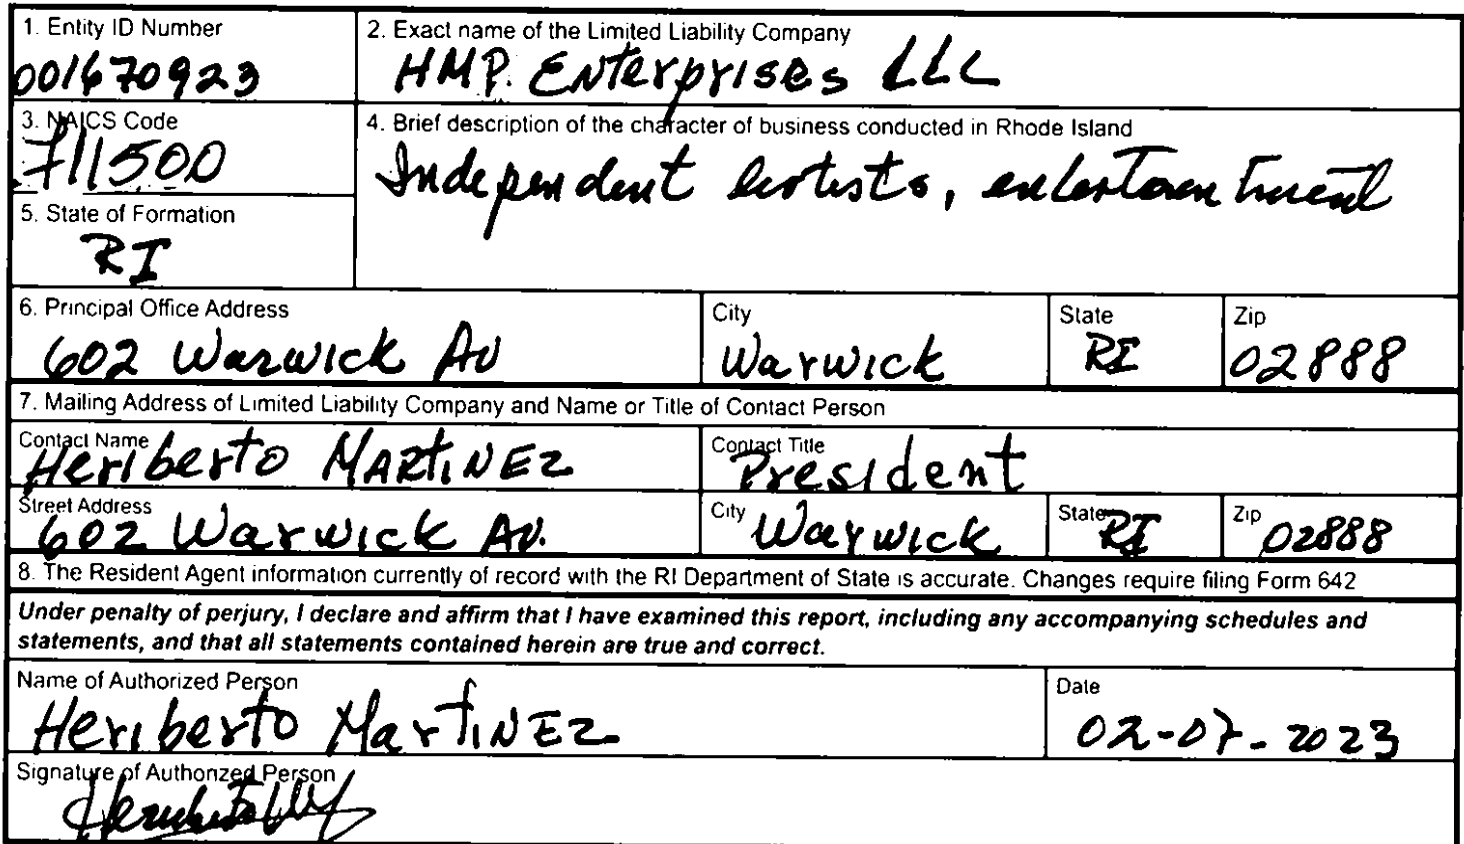 1. Entity ID Number
001670923
2. Exact name of the Limited Liability Company
HMP. ENterprises LLC
3. NAICS Code
711500
4. Brief description of the character of business conducted in Rhode Island
Independent artists, entertainment
5. State of Formation
RI
6. Principal Office Address
602 Warwick Av
City
Warwick
State
RI
Zip
02888
7. Mailing Address of Limited Liability Company and Name or Title of Contact Person
Contact Name
Heriberto MARTINEZ
Contact Title
President
Street Address
602 Warwick Av.
City
Warwick
State
RI
Zip
02888
8. The Resident Agent information currently of record with the RI Department of State is accurate. Changes require filing Form 642
Under penalty of perjury, I declare and affirm that I have examined this report, including any accompanying schedules and
statements, and that all statements contained herein are true and correct.
Name of Authorized Person
Heriberto MartINEZ
Date
02-07-2023
Signature of Authorized Person